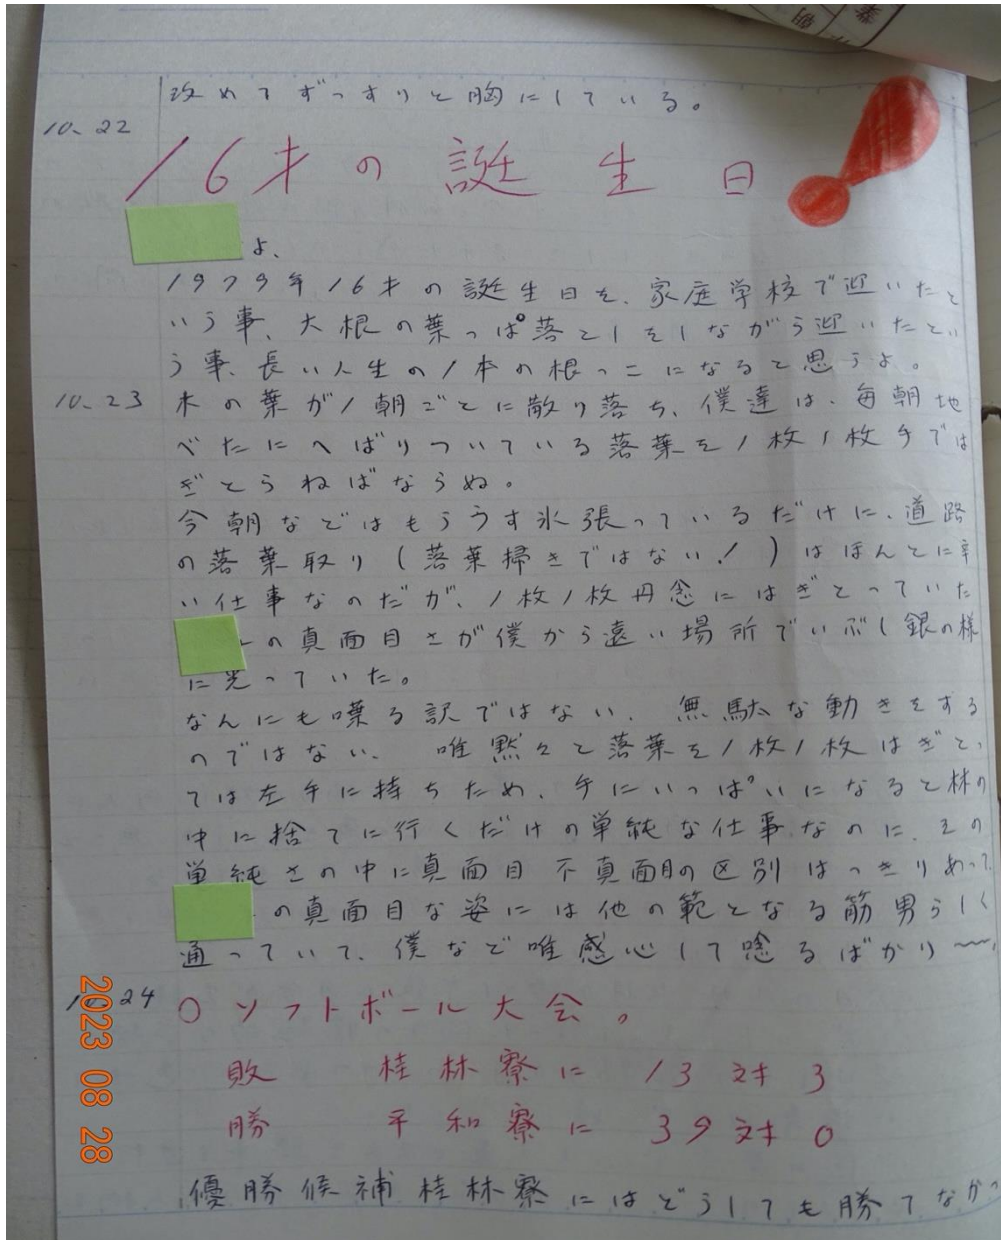 攻めてずっすりと胸にしている。
10.22
16才の誕生日
よ、
1979年16才の誕生日を、家庭学校で迎いたと
いう事、大根の葉っぱ落としをしながら迎いたとい
う事、長い人生の1本の根っこになると思うよ。
10.23 木の葉が1朝ごとに散り落ち、僕達は、毎朝地
べたにへばりついている落葉を1枚1枚手では
ぎとらねばならぬ。
今朝などはもううす氷張っているだけに、道路
の落葉取り(落葉掃きではない!)はほんとに辛
い仕事なのだが、1枚1枚丹念にはぎとっていた
の真面目さが僕から遠い場所でいぶし銀の様
に光っていた。
なんにも喋る訳ではない、無駄な動きをする
のではない、唯黙々と落葉を1枚1枚はぎとっ
ては左手に持ちため、手にいっぱいになると林の
中に捨てに行くだけの単純な仕事なのに、その
単純さの中に真面目不真面目の区別はっきりあって
の真面目な姿には他の範となる筋男らしく
通っていて、僕など唯感心して唸るばかり〜
10.24 ○ソフトボール大会。
敗 桂林寮に 13対3
勝 平和寮に 39対0
優勝候補桂林寮にはどうしても勝てなかっ
2023 08 28